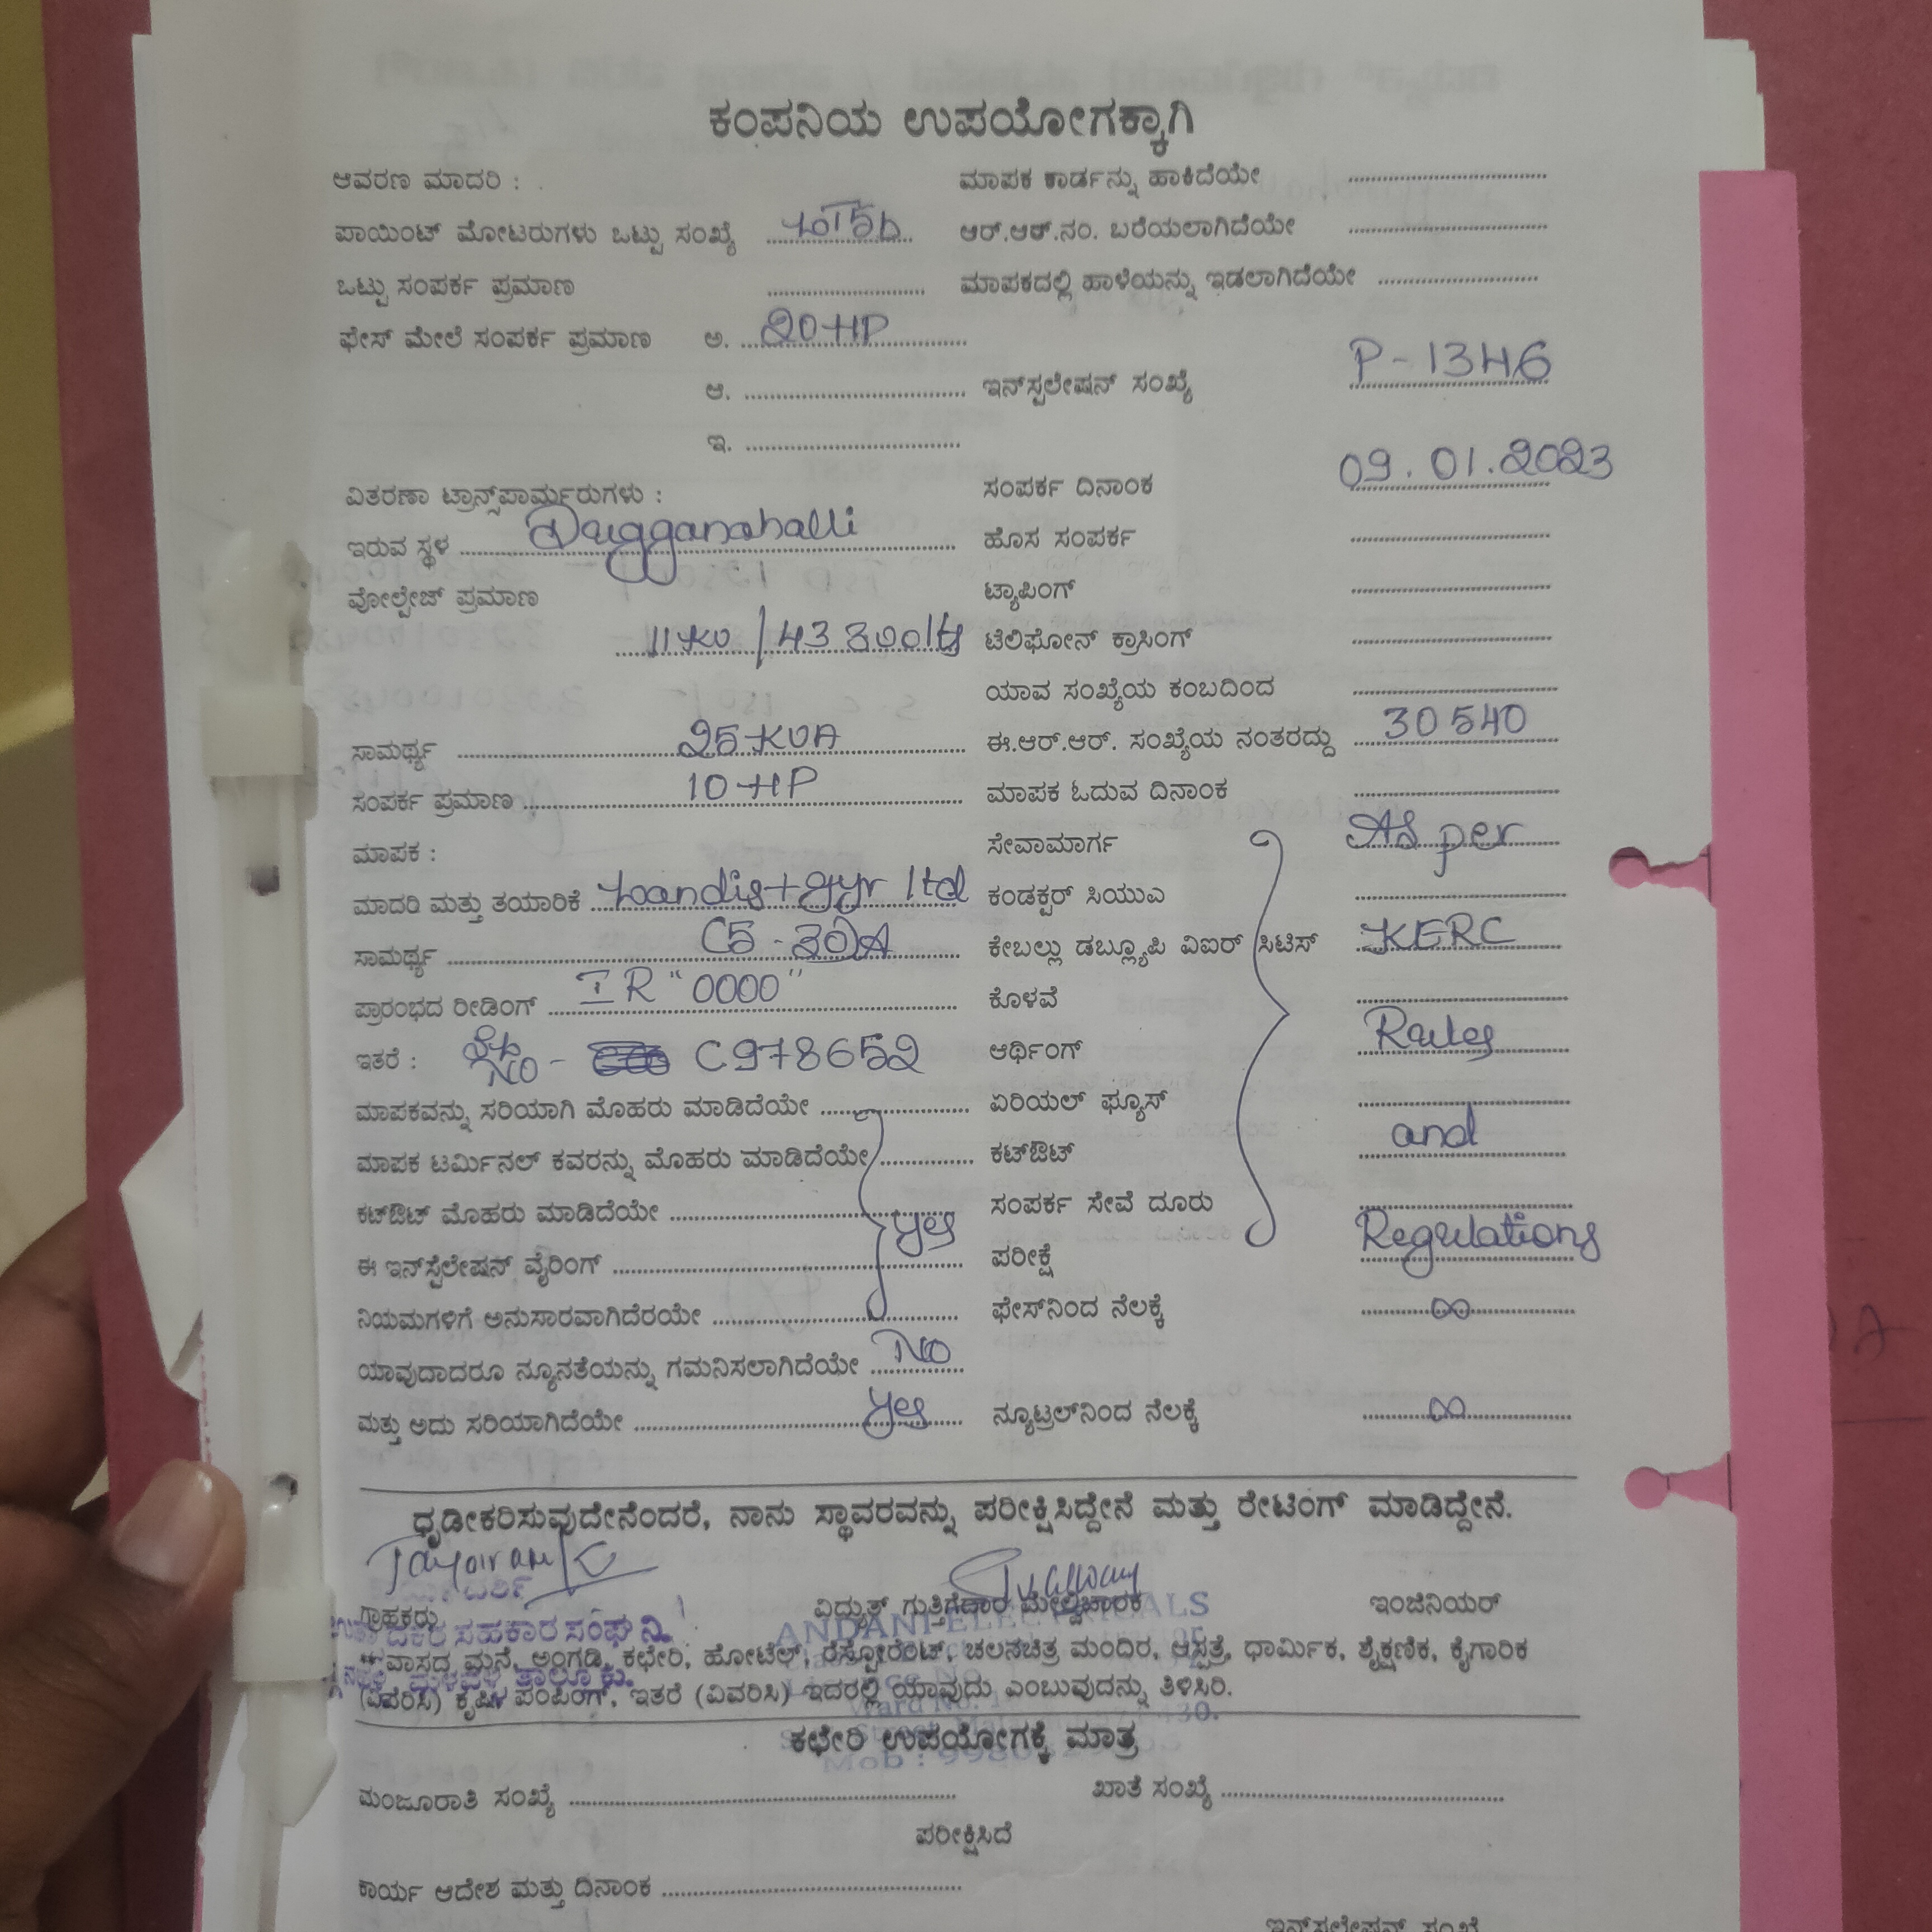 ಕಂಪನಿಯ ಉಪಯೋಗಕ್ಕಾಗಿ
ಆವರಣ ಮಾದರಿ :
ಪಾಯಿಂಟ್ ಮೋಟರುಗಳು ಒಟ್ಟು ಸಂಖ್ಯೆ
ಒಟ್ಟು ಸಂಪರ್ಕ ಪ್ರಮಾಣ
ಫೇಸ್ ಮೇಲೆ ಸಂಪರ್ಕ ಪ್ರಮಾಣ ಅ. 20 HP
ಆ.
ಇ.
ವಿತರಣಾ ಟ್ರಾನ್ಸ್‌ಪಾರ್ಮ್ರರುಗಳು :
ಇರುವ ಸ್ಥಳ Dugganahalli
ವೋಲ್ಟೇಜ್ ಪ್ರಮಾಣ
11 KV / 433 volts
ಸಾಮರ್ಥ್ಯ 25 KVA
ಸಂಪರ್ಕ ಪ್ರಮಾಣ 10 HP
ಮಾಪಕ :
ಮಾದರಿ ಮತ್ತು ತಯಾರಿಕೆ Landis + gyr ltd
ಸಾಮರ್ಥ್ಯ (5 - 30)A
ಪ್ರಾರಂಭದ ರೀಡಿಂಗ್ IR "0000"
ಇತರೆ : NO - C978652
ಮಾಪಕವನ್ನು ಸರಿಯಾಗಿ ಮೊಹರು ಮಾಡಿದೆಯೇ
ಮಾಪಕ ಟರ್ಮಿನಲ್ ಕವರನ್ನು ಮೊಹರು ಮಾಡಿದೆಯೇ
ಕಟ್‌ಔಟ್ ಮೊಹರು ಮಾಡಿದೆಯೇ yes
ಈ ಇನ್‌ಸ್ಟೆಲೇಷನ್ ವೈರಿಂಗ್
ನಿಯಮಗಳಿಗೆ ಅನುಸಾರವಾಗಿದೆರಯೇ
ಯಾವುದಾದರೂ ನ್ಯೂನತೆಯನ್ನು ಗಮನಿಸಲಾಗಿದೆಯೇ No
ಮತ್ತು ಅದು ಸರಿಯಾಗಿದೆಯೇ yes
ಮಾಪಕ ಕಾರ್ಡನ್ನು ಹಾಕಿದೆಯೇ
ಆರ್.ಆರ್.ನಂ. ಬರೆಯಲಾಗಿದೆಯೇ
ಮಾಪಕದಲ್ಲಿ ಹಾಳೆಯನ್ನು ಇಡಲಾಗಿದೆಯೇ
ಇನ್‌ಸ್ಟಲೇಷನ್ ಸಂಖ್ಯೆ P - 1346
ಸಂಪರ್ಕ ದಿನಾಂಕ 09.01.2023
ಹೊಸ ಸಂಪರ್ಕ
ಟ್ಯಾಪಿಂಗ್
ಟೆಲಿಫೋನ್ ಕ್ರಾಸಿಂಗ್
ಯಾವ ಸಂಖ್ಯೆಯ ಕಂಬದಿಂದ
ಈ.ಆರ್.ಆರ್. ಸಂಖ್ಯೆಯ ನಂತರದ್ದು 30540
ಮಾಪಕ ಓದುವ ದಿನಾಂಕ
ಸೇವಾಮಾರ್ಗ As per
ಕಂಡಕ್ಟರ್ ಸಿಯುಎ
ಕೇಬಲ್ಲು ಡಬ್ಲ್ಯೂಪಿ ವಿಐರ್ ಸಿಟಿಸ್ KERC
ಕೊಳವೆ
ಆರ್ಥಿಂಗ್ Rules
ಏರಿಯಲ್ ಫ್ಯೂಸ್
ಕಟ್‌ಔಟ್ and
ಸಂಪರ್ಕ ಸೇವೆ ದೂರು
ಪರೀಕ್ಷೆ Regulations
ಫೇಸ್‌ನಿಂದ ನೆಲಕ್ಕೆ ∞
ನ್ಯೂಟ್ರಲ್‌ನಿಂದ ನೆಲಕ್ಕೆ ∞
ಧೃಡೀಕರಿಸುವುದೇನೆಂದರೆ, ನಾನು ಸ್ಥಾವರವನ್ನು ಪರೀಕ್ಷಿಸಿದ್ದೇನೆ ಮತ್ತು ರೇಟಿಂಗ್ ಮಾಡಿದ್ದೇನೆ.
ಗ್ರಾಹಕರು ವಿದ್ಯುತ್ ಗುತ್ತಿಗೆದಾರ ಮೇಲ್ವಿಚಾರಕ ಇಂಜಿನಿಯರ್
ಸಹಕಾರ ಸಂಘ ನಿ.
ANDANI ELECTRICALS
ವಾಸದ ಮನೆ, ಅಂಗಡಿ, ಕಛೇರಿ, ಹೋಟೆಲ್, ರೆಸ್ಟೋರೆಂಟ್, ಚಲನಚಿತ್ರ ಮಂದಿರ, ಆಸ್ಪತ್ರೆ, ಧಾರ್ಮಿಕ, ಶೈಕ್ಷಣಿಕ, ಕೈಗಾರಿಕ
(ವಿವರಿಸಿ) ಕೃಷಿ, ಪಂಪಿಂಗ್, ಇತರೆ (ವಿವರಿಸಿ) ಇದರಲ್ಲಿ ಯಾವುದು ಎಂಬುವುದನ್ನು ತಿಳಿಸಿರಿ.
ಕಛೇರಿ ಉಪಯೋಗಕ್ಕೆ ಮಾತ್ರ
ಮಂಜೂರಾತಿ ಸಂಖ್ಯೆ ಖಾತೆ ಸಂಖ್ಯೆ
ಪರೀಕ್ಷಿಸಿದೆ
ಕಾರ್ಯ ಆದೇಶ ಮತ್ತು ದಿನಾಂಕ